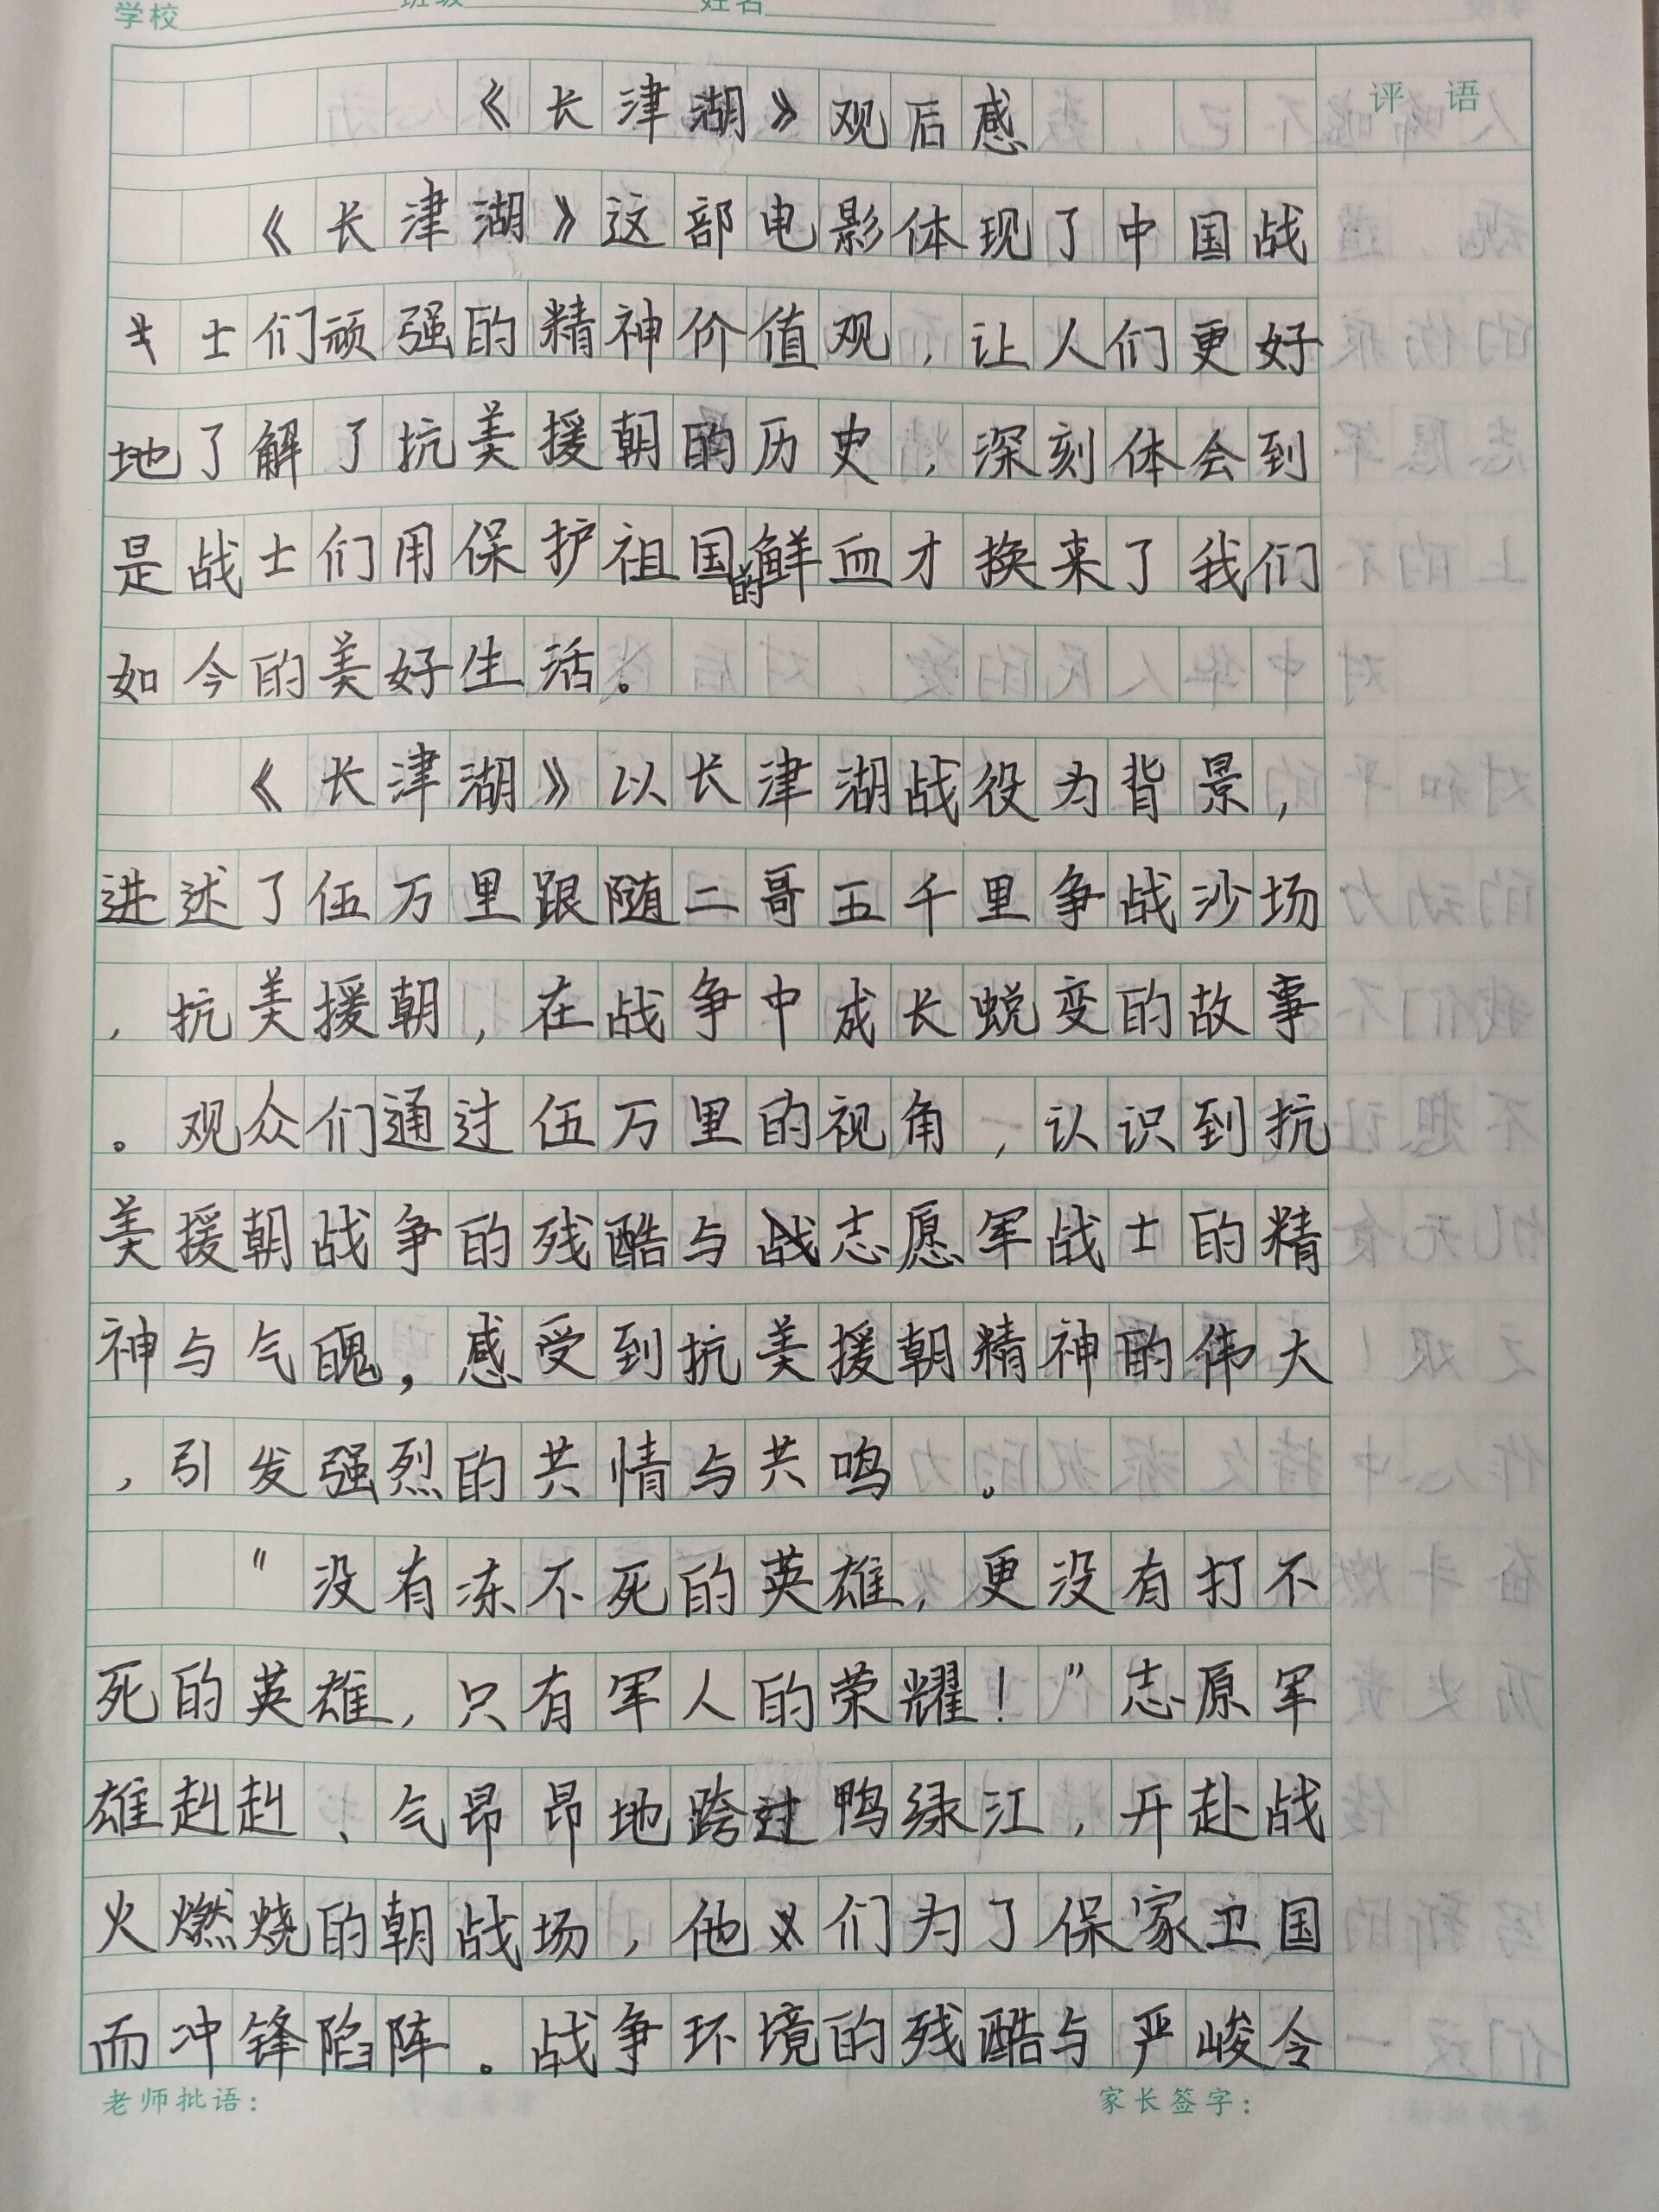 学校 班级 姓名
《长津湖》观后感
评语
《长津湖》这部电影体现了中国战
士们顽强的精神价值观，让人们更好
地了解了抗美援朝的历史，深刻体会到
是战士们用保护祖国的鲜血才换来了我们
如今的美好生活。
《长津湖》以长津湖战役为背景，
进述了伍万里跟随二哥五千里争战沙场
，抗美援朝，在战争中成长蜕变的故事
。观众们通过伍万里的视角，认识到抗
美援朝战争的残酷与志愿军战士的精
神与气魄，感受到抗美援朝精神的伟大
，引发强烈的共情与共鸣。
"没有冻不死的英雄，更没有打不
死的英雄，只有军人的荣耀！"志原军
雄赳赳、气昂昂地跨过鸭绿江，开赴战
火燃烧的朝战场，他们为了保家卫国
而冲锋陷阵。战争环境的残酷与严峻令
老师批语： 家长签字：